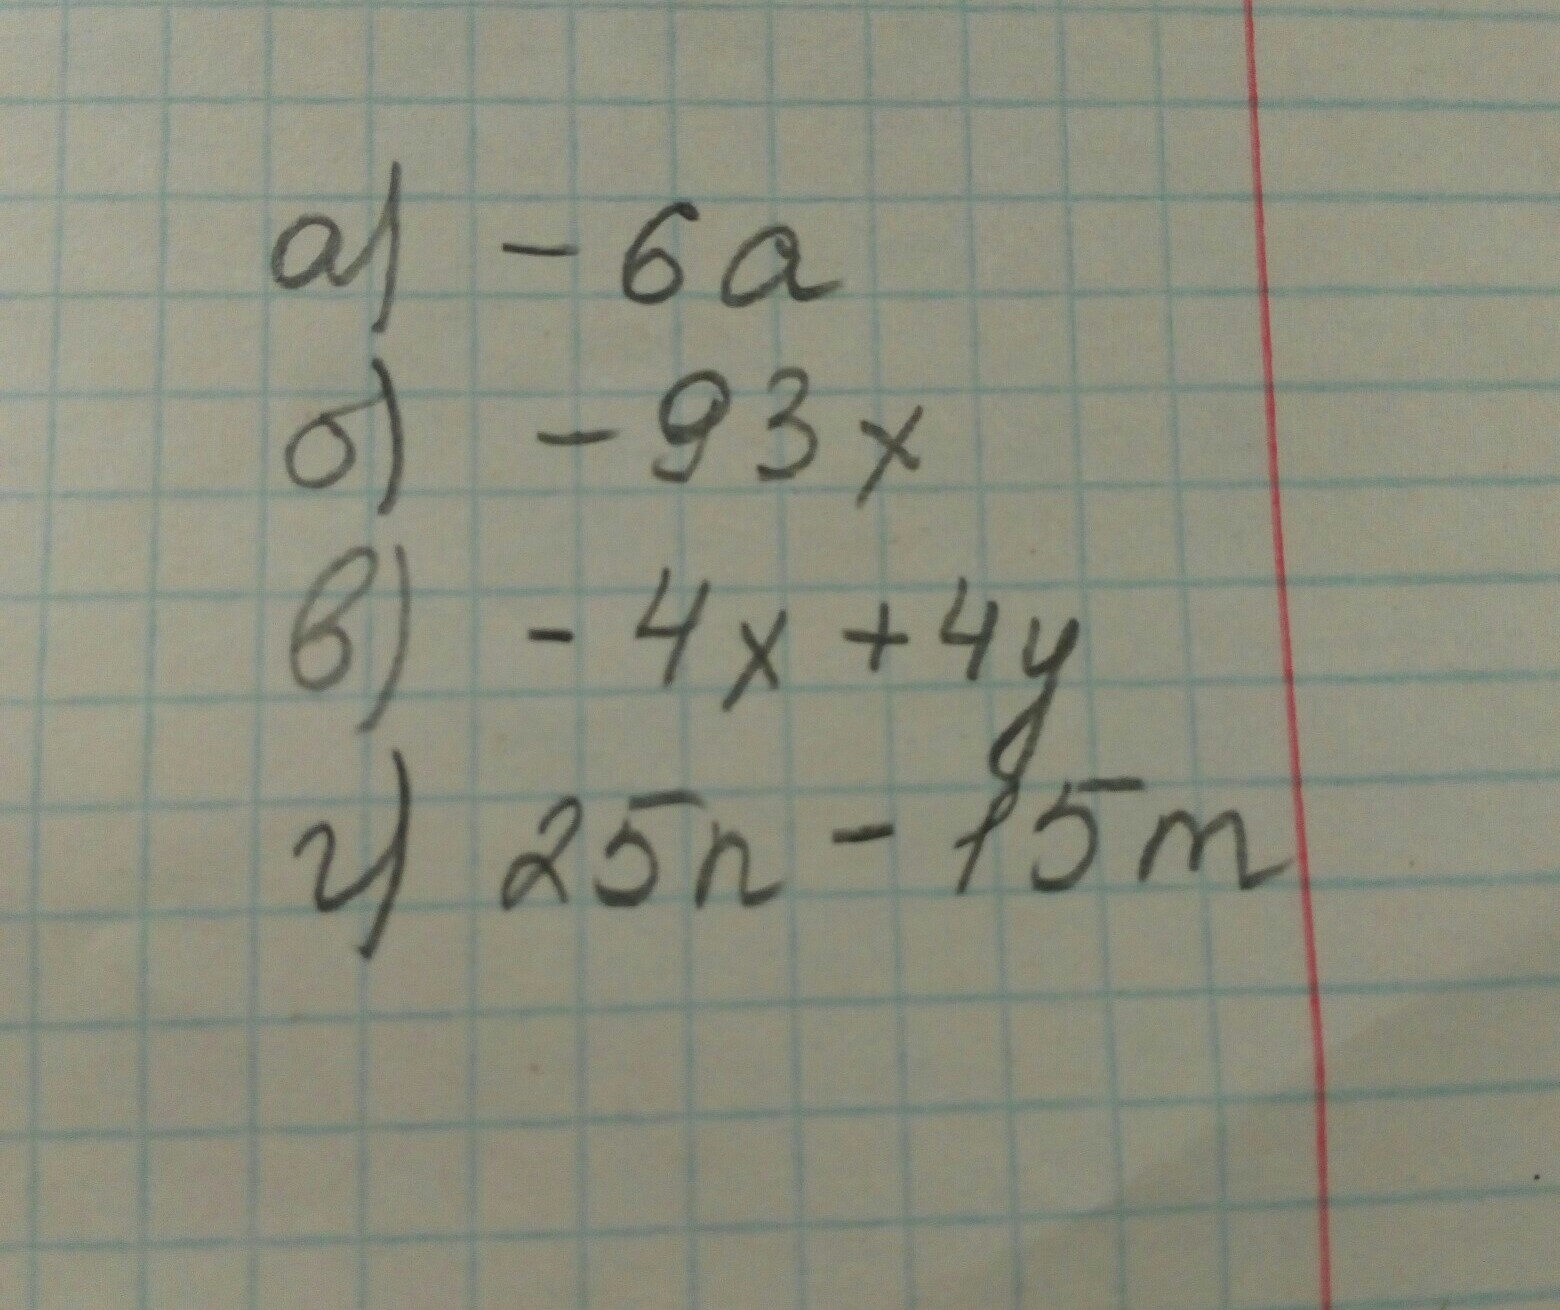 а) - 6a
б) - 93x
в) - 4x + 4y
г) 25n - 15m